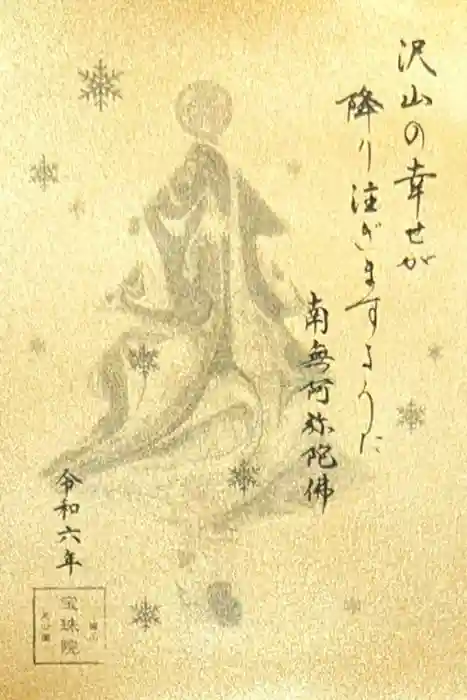 沢山の幸せが
降り注ぎますように
南無阿弥陀佛
令和六年
宝珠院